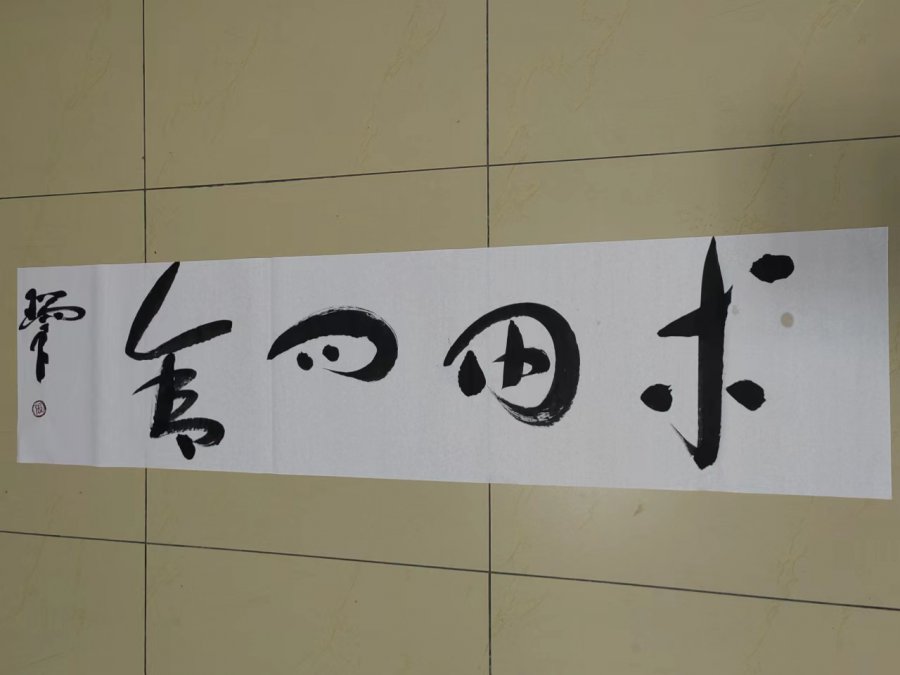 求田问舍